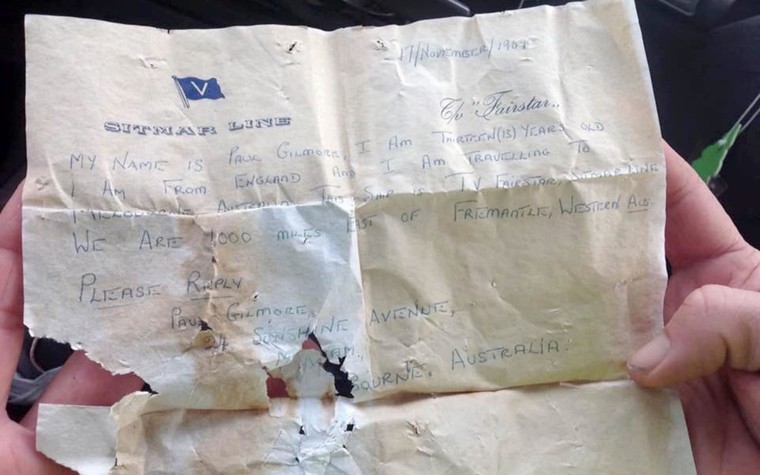 17/NOVEMBER/190
V
SITMAR LINE
T/v "Fairstar"
MY NAME IS PAUL GILMORE, I AM THIRTEEN(13) YEARS OLD
I AM FROM ENGLAND AND I AM TRAVELLING TO
MELBOURNE AUSTRALIA THIS SHIP IS TV FAIRSTAR, SITMAR LINE
WE ARE 1,000 MILES EAST OF FREMANTLE, WESTERN AUS.
PLEASE REPLY
PAUL GILMORE,
24 SUNSHINE AVENUE,
BOURNE, AUSTRALIA.